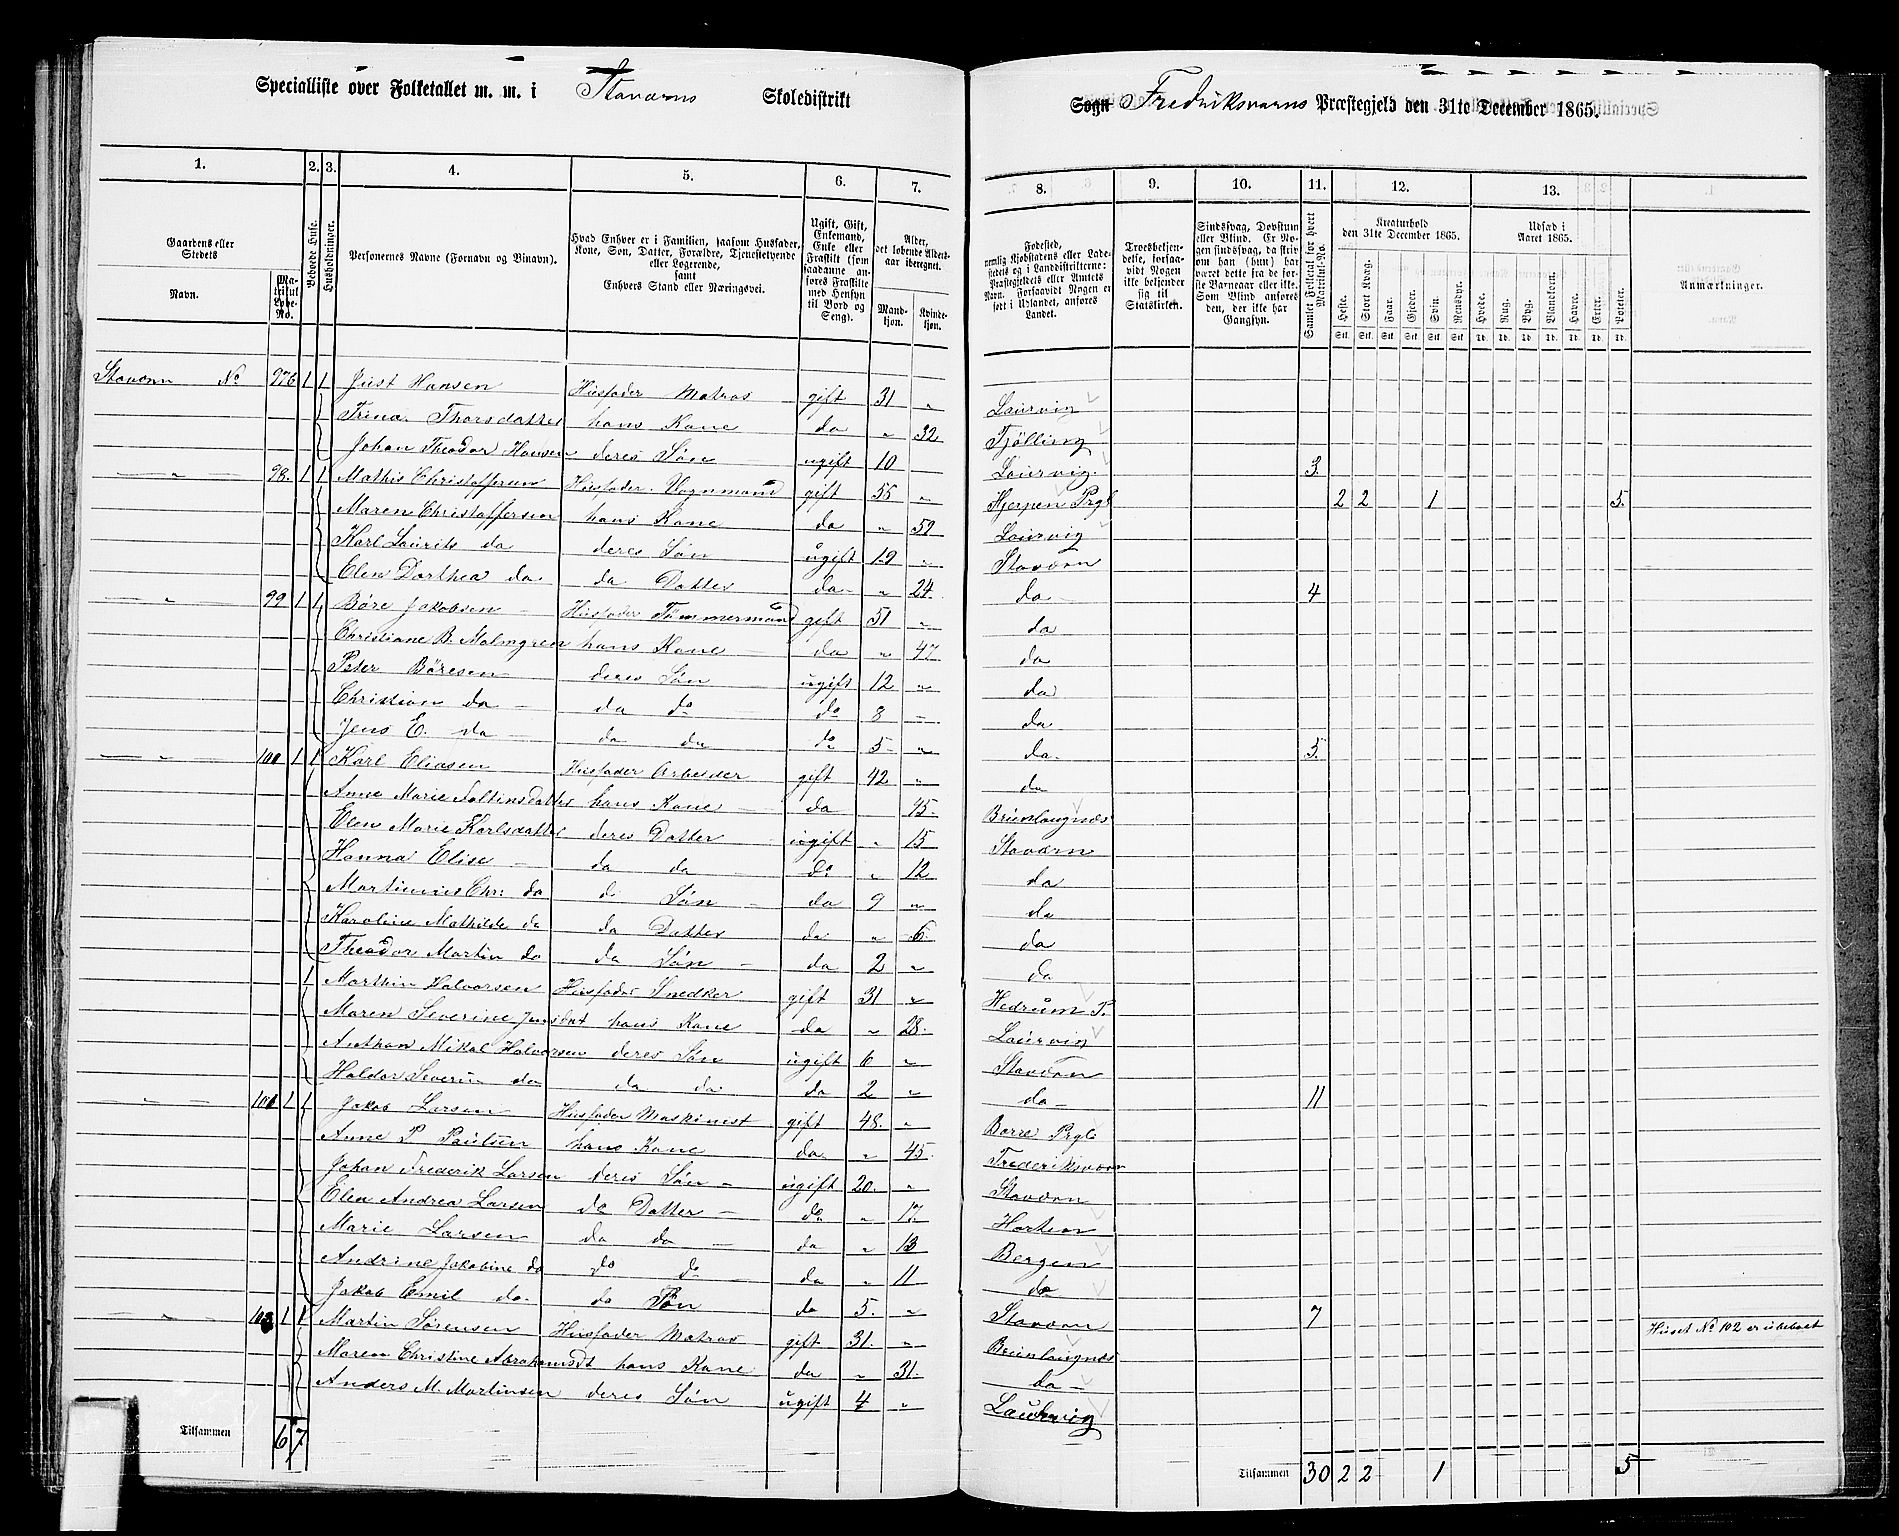 Specialliste over Folketallet m. m. i Staværns Skoledistrikt
Sogn Fredriksværns Præstegjeld den 31te December 1865.
1. 2. 3. 4. 5. 6. 7.
8. 9. 10. 11. 12. 13.
Gaardens eller Stedets
Navn.
Matrikul Løbe-No.
Beboede Huse.
Husholdninger.
Personernes Navne (Fornavn og Binavn).
Hvad Enhver er i Familien, saasom Husfader, Kone, Søn, Datter, Forældre, Tjenestetyende eller Logerende,
samt
Enhvers Stand eller Næringsvei.
Ugift, Gift, Enkemand, Enke eller Fraskilt (som saadanne anføres Fraskilte med Hensyn til Bord og Seng).
Alder, det løbende Aldersaar iberegnet.
Mandkjøn. Kvindekjøn.
Fødested, nemlig Kjøbstadens eller Ladestedets og i Landdistrikterne: Præstegjeldets eller Amtets Navn. Forsaavidt Nogen er født i Udlandet, anføres Landet.
Troesbekjendelse, forsaavidt Nogen ikke bekjender sig til Statskirken.
Sindssvag, Døvstum eller Blind. Er Nogen sindssvag, da skrives om han (hun) har været dette fra de første Barneaar eller ikke. Som Blind anføres den, der ikke har Gangsyn.
Samlet Folketal for hvert Matrikul-No.
Kreaturhold den 31te December 1865.
Heste. Stort Kvæg. Faar. Gjeder. Svin. Rensdyr.
Udsæd i Aaret 1865.
Hvede. Rug. Byg. Blandkorn. Havre. Erter. Poteter.
Anmærkninger.
Staværn No 976 1 1 Just Hansen Husfader Matros gift 31 " Laurvig
Trina Thorsdatter hans Kone do " 32 Tjølling
Johan Theodor Hansen deres Søn ugift 10 Laurvig 3
" 98 1 1 Mathis Christoffersen Husfader Vognmand gift 55 " Hjerpen Prgl 2 2 1 5
Maren Christoffersen hans Kone do " 59 Laurvig
Karl Laurits do deres Søn ugift 19 " Staværn
Elen Dorthea do do Datter do " 24 do 4
" 99 1 1 Børe Jakobsen Husfader Tømmermand gift 51 " do
Christiane B. Malmgren hans Kone do " 47 do
Peter Børesen deres Søn ugift 12 " do
Christian do do do do 8 do
Jens E. do do do do 5 " do 5
" 100 1 1 Karl Eliasen Husfader Arbeider gift 42 " do
Anne Marie hans Kone do 45 Brunlaugnæs
Elen Marie Karlsdatter deres Datter ugift " 15 Staværn
Hanna Elise do do do " 12 do
Martinius Chr: do do Søn do 9 " do
Karoline Mathilde do do Datter do " 6 do
Theodor Martin do do Søn do 2 " do
1 Marthin Halvorsen Husfader Snedker gift 31 " Hedrum P.
Maren Severine Jensdat hans Kone do " 28 Laurvig
Anthon Mikal Halvorsen deres Søn ugift 6 " Staværn
Haldor Severin do do do do 2 " do 11
" 101 1 1 Jakob Larsen Husfader Maskinist gift 48 " Borre Prgl
Anne P Paulsen hans Kone do " 45 Frederiksværn
Johan Frederik Larsen deres Søn ugift 20 " Staværn
Elen Andrea Larsen do Datter do " 17 Horten
Marie Larsen do do do " 13 Bergen
Andrine Jakobine do do do do " 11 do
Jakob Emil do do Søn do 5 " Staværn 7
" 103 1 1 Martin Sørensen Husfader Matros gift 31 " Brunlaugnæs Huset No 102 er ubeboet
Maren Christine Abrahamsdt hans Kone do " 31 do
Anders M. Martinsen deres Søn ugift 4 " Laurvig
Tilsammen 6 7
Tilsammen 30 2 2 1 5